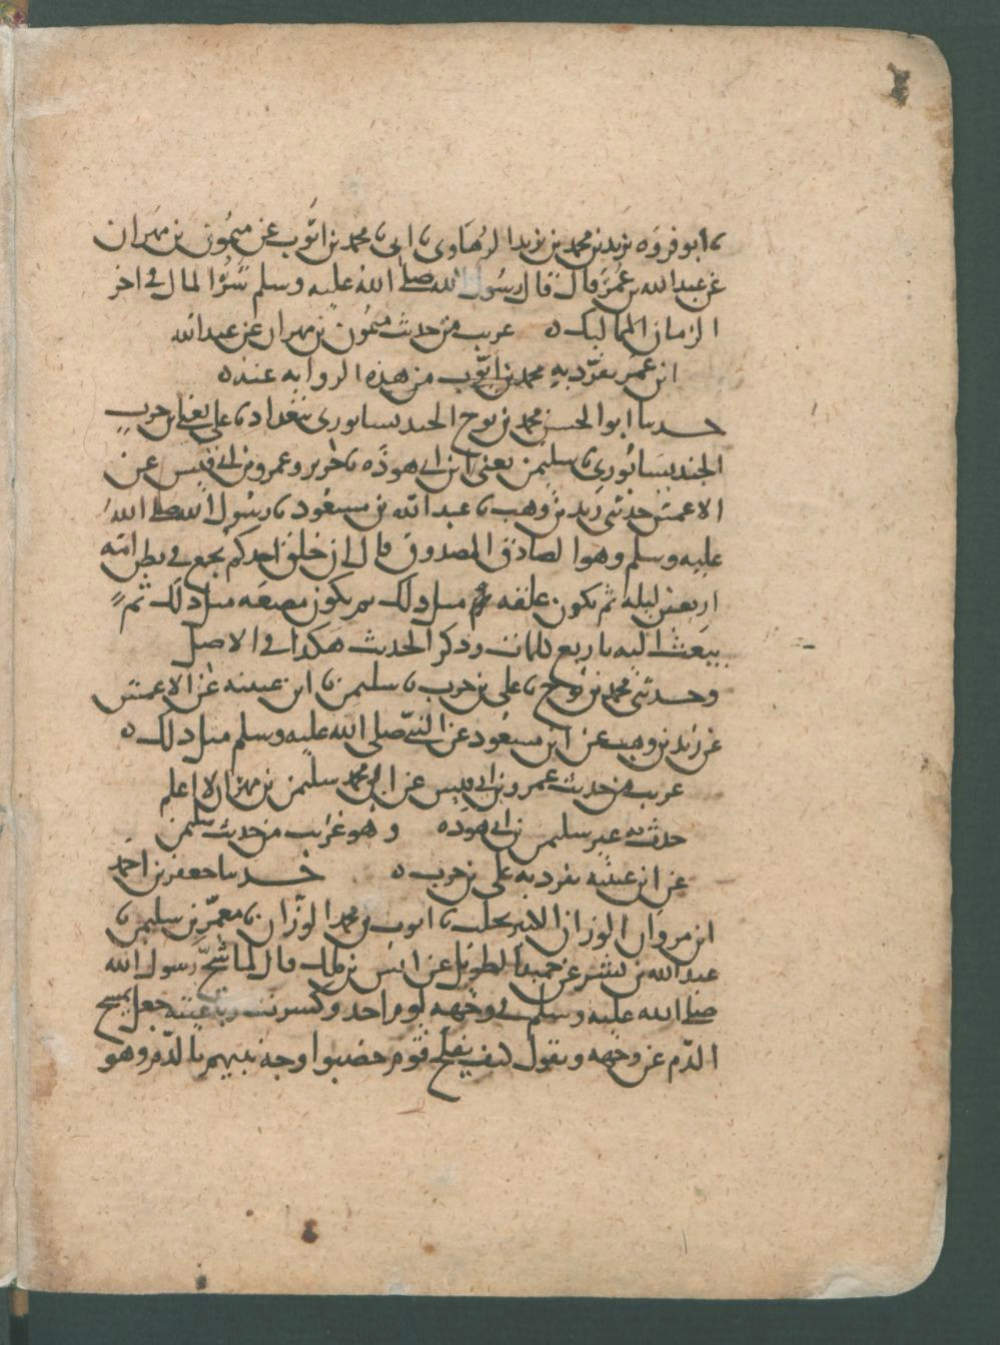 نا ابو فروه يزيد بن محمد بن يزيد الرهاوى نا ابى نا محمد بن ايوب عن ميمون بن مهران
عن عبد الله بن عمر قال قال رسول الله صلى الله عليه وسلم شر المال فى اخر
الزمان المماليك ه غريب من حديث ميمون بن مهران عن عبد الله
ابن عمر تفرد به محمد بن ايوب من هذه الروايه عنه ه
حدثنا ابو الحسن محمد بن نوح الجنديسابورى ببغداد نا على يعنى ابن حرب
الجنديسابورى نا سليمن يعنى ابن ابى هوذه نا عمرو بن ابى قيس عن
الاعمش حدثنى زيد بن وهب نا عبد الله بن مسعود نا رسول الله صلى الله
عليه وسلم وهو الصادق المصدوق قال ان خلق احدكم يجمع فى بطن امه
اربعين ليله ثم يكون علقه مثل ذلك ثم يكون مضغه مثل ذلك ثم
يبعث اليه باربع كلمات وذكر الحديث هكذا فى الاصل
وحدثنى محمد بن نوح نا على بن حرب نا سليمن نا ابن عيينه عن الاعمش
عن زيد بن وهب عن ابن مسعود عن النبى صلى الله عليه وسلم مثل ذلك ه
غريب من حديث عمرو بن ابى قيس عن ابى محمد سليمن بن مهران لا اعلم
حدث به غير سليمن بن ابى هوذه وهو غريب من حديث سليمن
عن ابن عيينه تفرد به على بن حرب ه حدثنا جعفر بن احمد
ابن مروان الوزان بحلب نا ايوب بن محمد الوزان نا معمر بن سليمن نا
عبد الله بن بشر عن حميد الطويل عن انس بن مالك قال لما شج رسول الله
صلى الله عليه وسلم فى وجهه يوم احد وكسرت رباعيته جعل يمسح
الدم عن وجهه ويقول كيف يفلح قوم خضبوا وجه نبيهم بالدم وهو